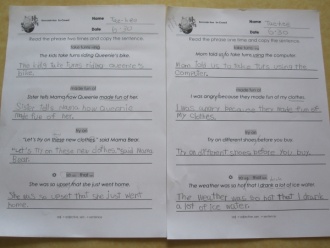 Name
Date 10-30
Read the phrase two times and copy the sentence.
take turns riding
The kids take turns riding Queenie's bike.
The kids take turns riding Queenie's
bike.
made fun of
Sister tells Mama how Queenie made fun of her.
Sister tells mama how Queenie
made fun of her.
try on
"Let's try on these new clothes" said Mama Bear.
"Let's try on these new clothes" said Mama
Bear.
so that
She was so upset that she just went home.
She was so upset that she just went
home.
Name
Date 10-30
Read the phrase two times and copy the sentence.
take turns
Mom told us to take turns using the computer.
Mom told us to take turs using the
computer.
made fun of
I was angry because they made fun of my clothes.
I was angry because they made fun of
my clothes.
try on
Try on different shoes before you buy.
Try on different shoes before you buy.
so that
The weather was so hot that I drank a lot of ice water.
The weather was so hot that I drank
a lot of ice water.